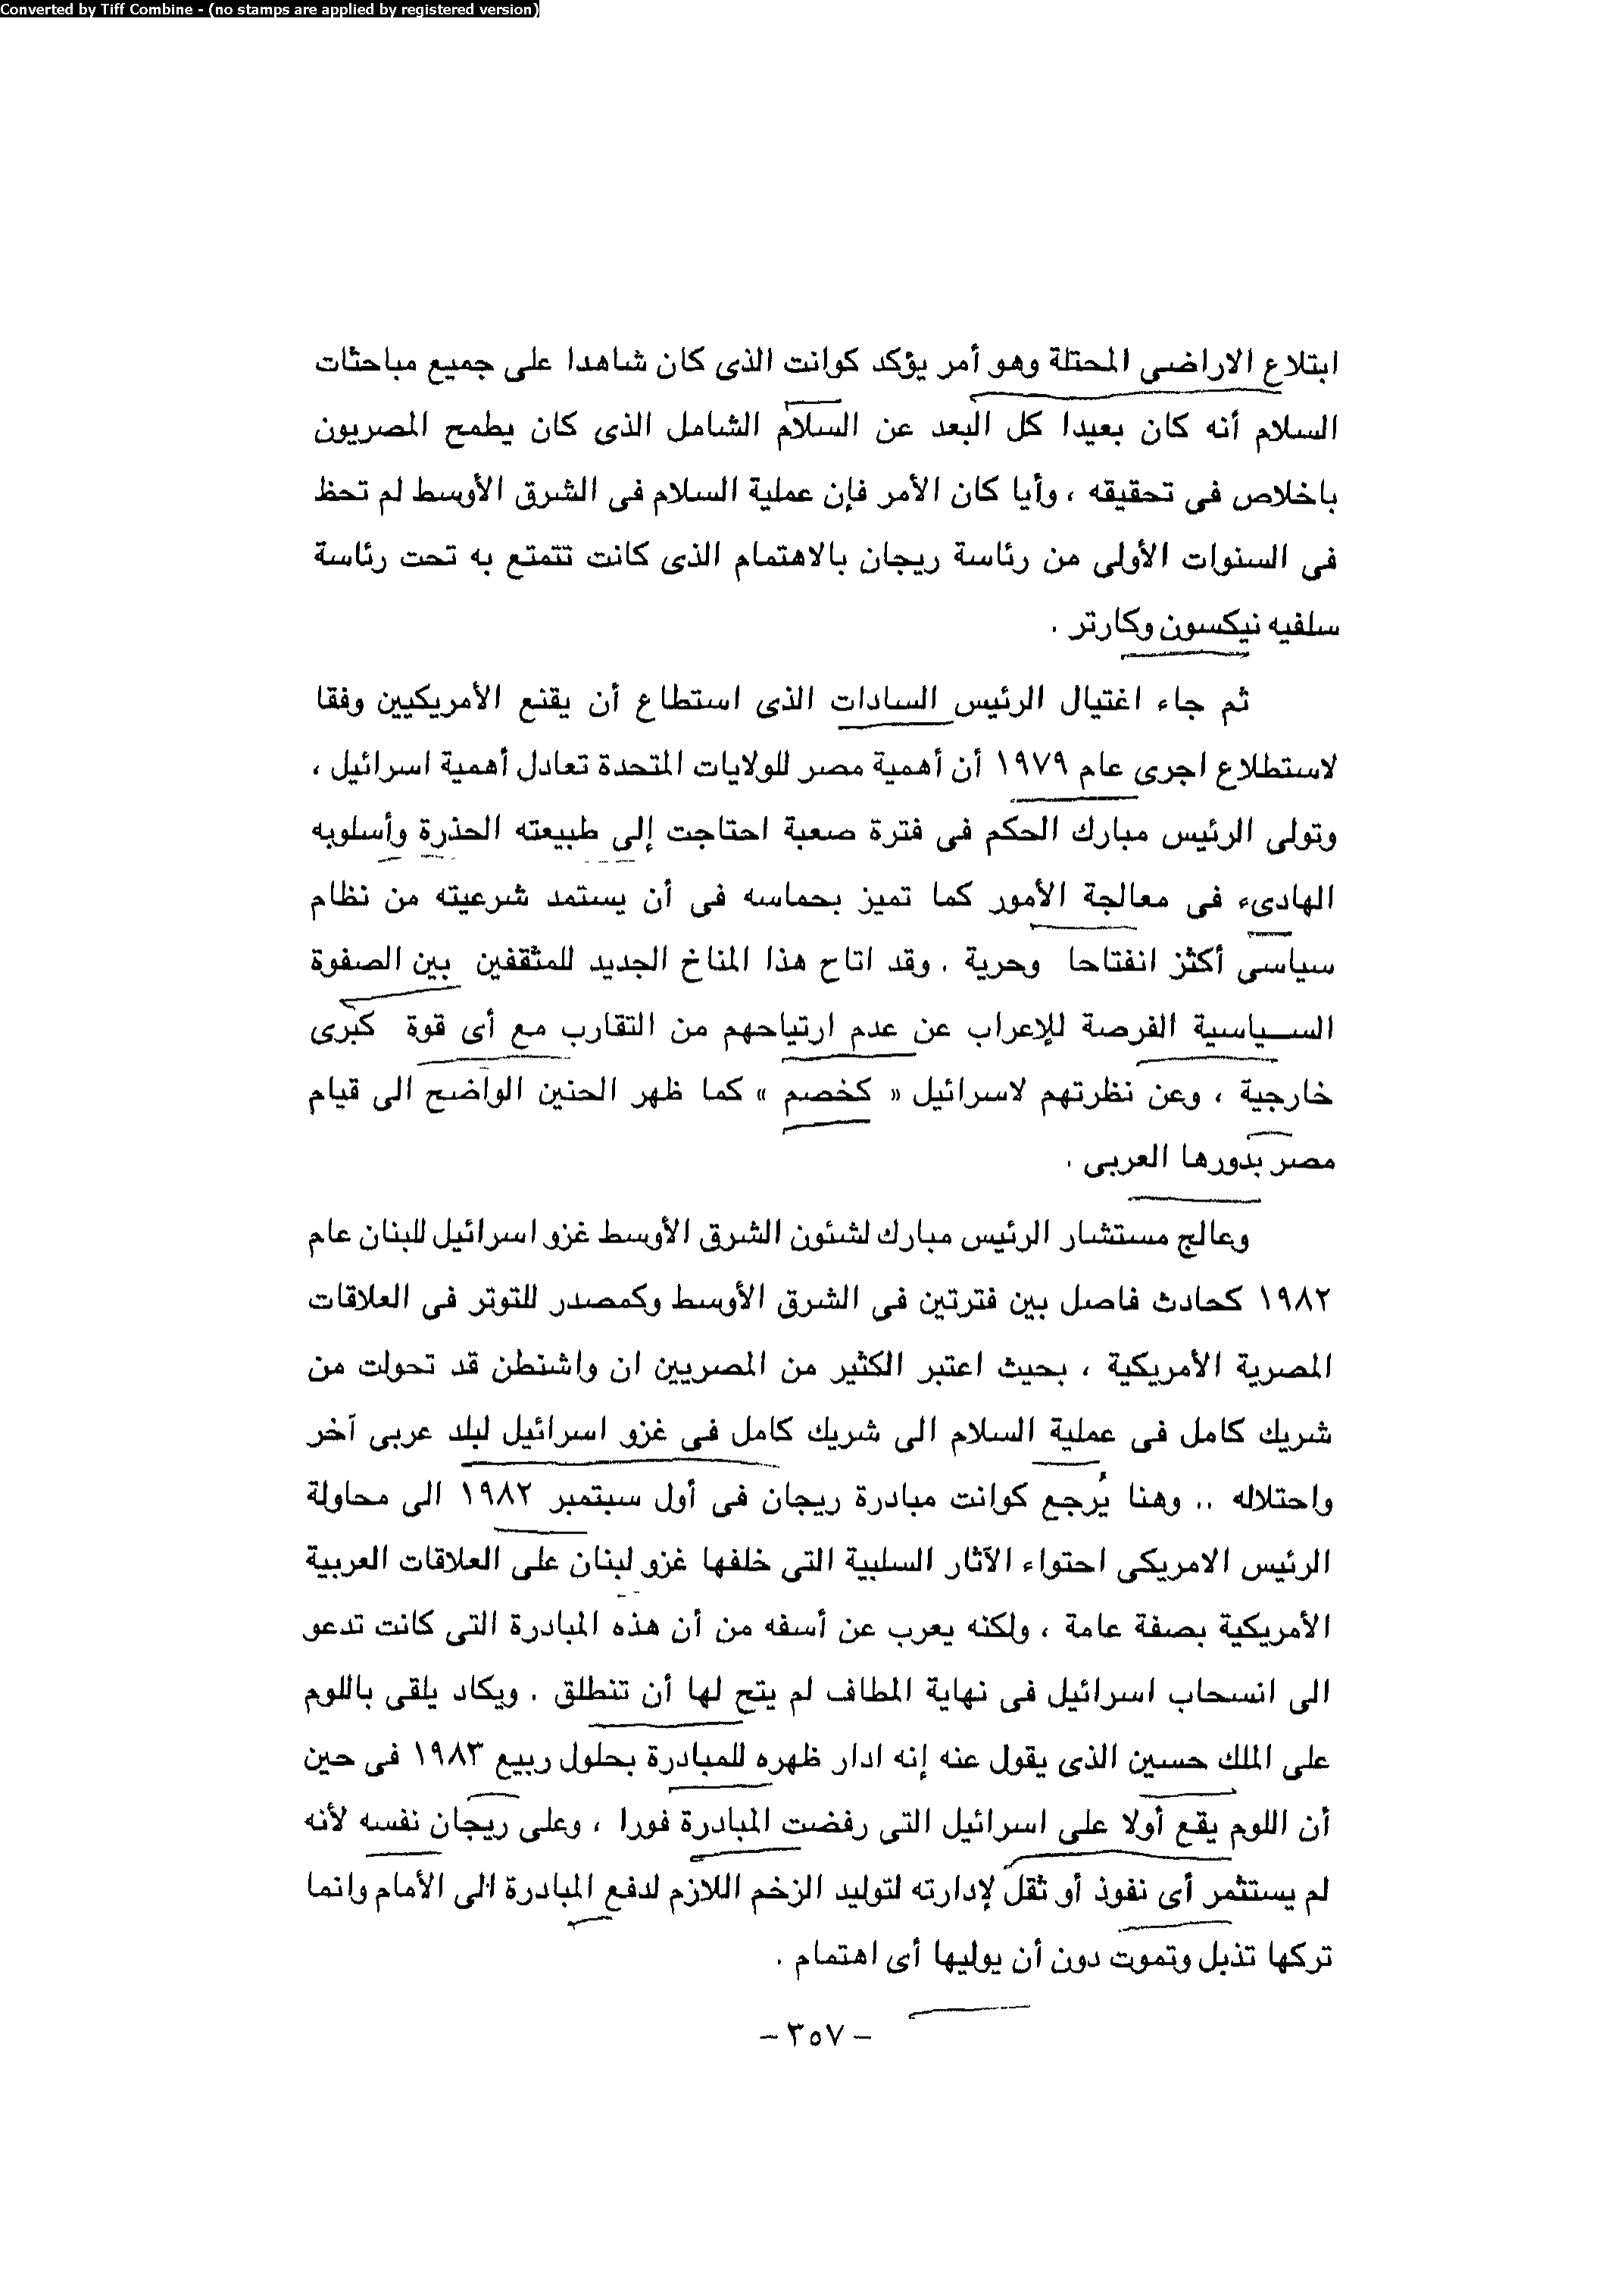 Converted by Tiff Combine - (no stamps are applied by registered version)
ابتلاع الاراضى المحتلة وهو أمر يؤكد كوانت الذى كان شاهدا على جميع مباحثات
السلام أنه كان بعيدا كل البعد عن السلام الشامل الذى كان يطمح المصريون
باخلاص فى تحقيقه ، وأيا كان الأمر فإن عملية السلام فى الشرق الأوسط لم تحظ
فى السنوات الأولى من رئاسة ريجان بالاهتمام الذى كانت تتمتع به تحت رئاسة
سلفيه نيكسون وكارتر .
ثم جاء اغتيال الرئيس السادات الذى استطاع أن يقنع الأمريكيين وفقا
لاستطلاع اجرى عام ١٩٧٩ أن أهمية مصر للولايات المتحدة تعادل أهمية اسرائيل ،
وتولى الرئيس مبارك الحكم فى فترة صعبة احتاجت إلى طبيعته الحذرة وأسلوبه
الهادىء فى معالجة الأمور كما تميز بحماسه فى أن يستمد شرعيته من نظام
سياسى أكثر انفتاحا وحرية . وقد اتاح هذا المناخ الجديد للمثقفين بين الصفوة
السياسية الفرصة للإعراب عن عدم ارتياحهم من التقارب مع أى قوة كبرى
خارجية ، وعن نظرتهم لاسرائيل « كخصم » كما ظهر الحنين الواضح الى قيام
مصر بدورها العربى .
وعالج مستشار الرئيس مبارك لشئون الشرق الأوسط غزو اسرائيل للبنان عام
١٩٨٢ كحادث فاصل بين فترتين فى الشرق الأوسط وكمصدر للتوتر فى العلاقات
المصرية الأمريكية ، بحيث اعتبر الكثير من المصريين ان واشنطن قد تحولت من
شريك كامل فى عملية السلام الى شريك كامل فى غزو اسرائيل لبلد عربى آخر
واحتلاله .. وهنا يُرجع كوانت مبادرة ريجان فى أول سبتمبر ١٩٨٢ الى محاولة
الرئيس الامريكى احتواء الآثار السلبية التى خلفها غزو لبنان على العلاقات العربية
الأمريكية بصفة عامة ، ولكنه يعرب عن أسفه من أن هذه المبادرة التى كانت تدعو
الى انسحاب اسرائيل فى نهاية المطاف لم يتح لها أن تنطلق . ويكاد يلقى باللوم
على الملك حسين الذى يقول عنه إنه ادار ظهره للمبادرة بحلول ربيع ١٩٨٣ فى حين
أن اللوم يقع أولا على اسرائيل التى رفضت المبادرة فورا ، وعلى ريجان نفسه لأنه
لم يستثمر أى نفوذ أو ثقل لإدارته لتوليد الزخم اللازم لدفع المبادرة الى الأمام وانما
تركها تذبل وتموت دون أن يوليها أى اهتمام .
- ٣٥٧ -